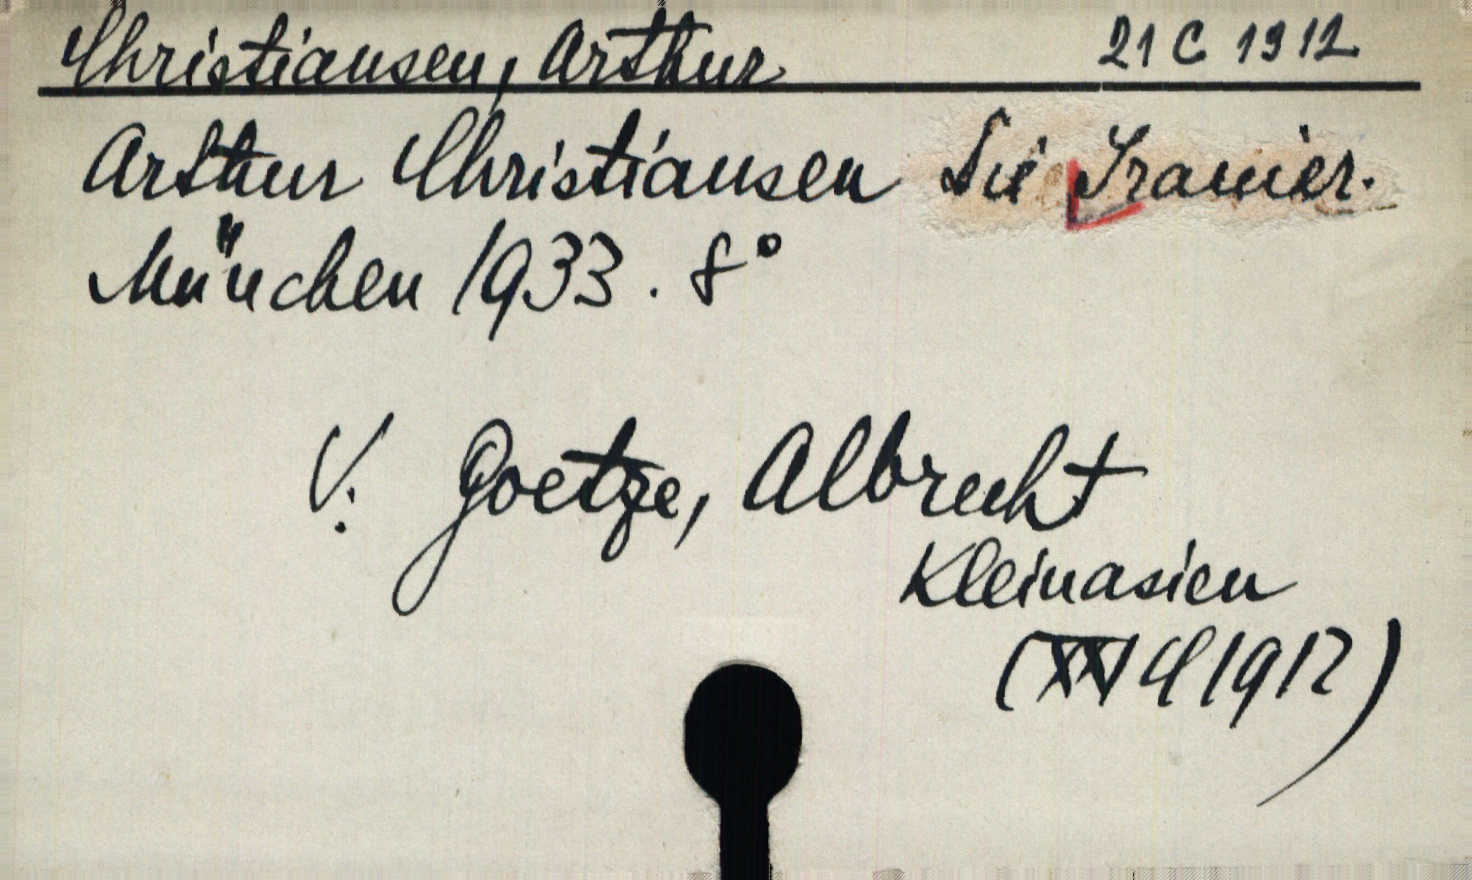 Christiansen, Arthur 21 C 1912
Arthur Christiansen Die Iranier.
München 1933. 8°
V. Goetze, Albrecht
Kleinasien
(XXI C 1912)